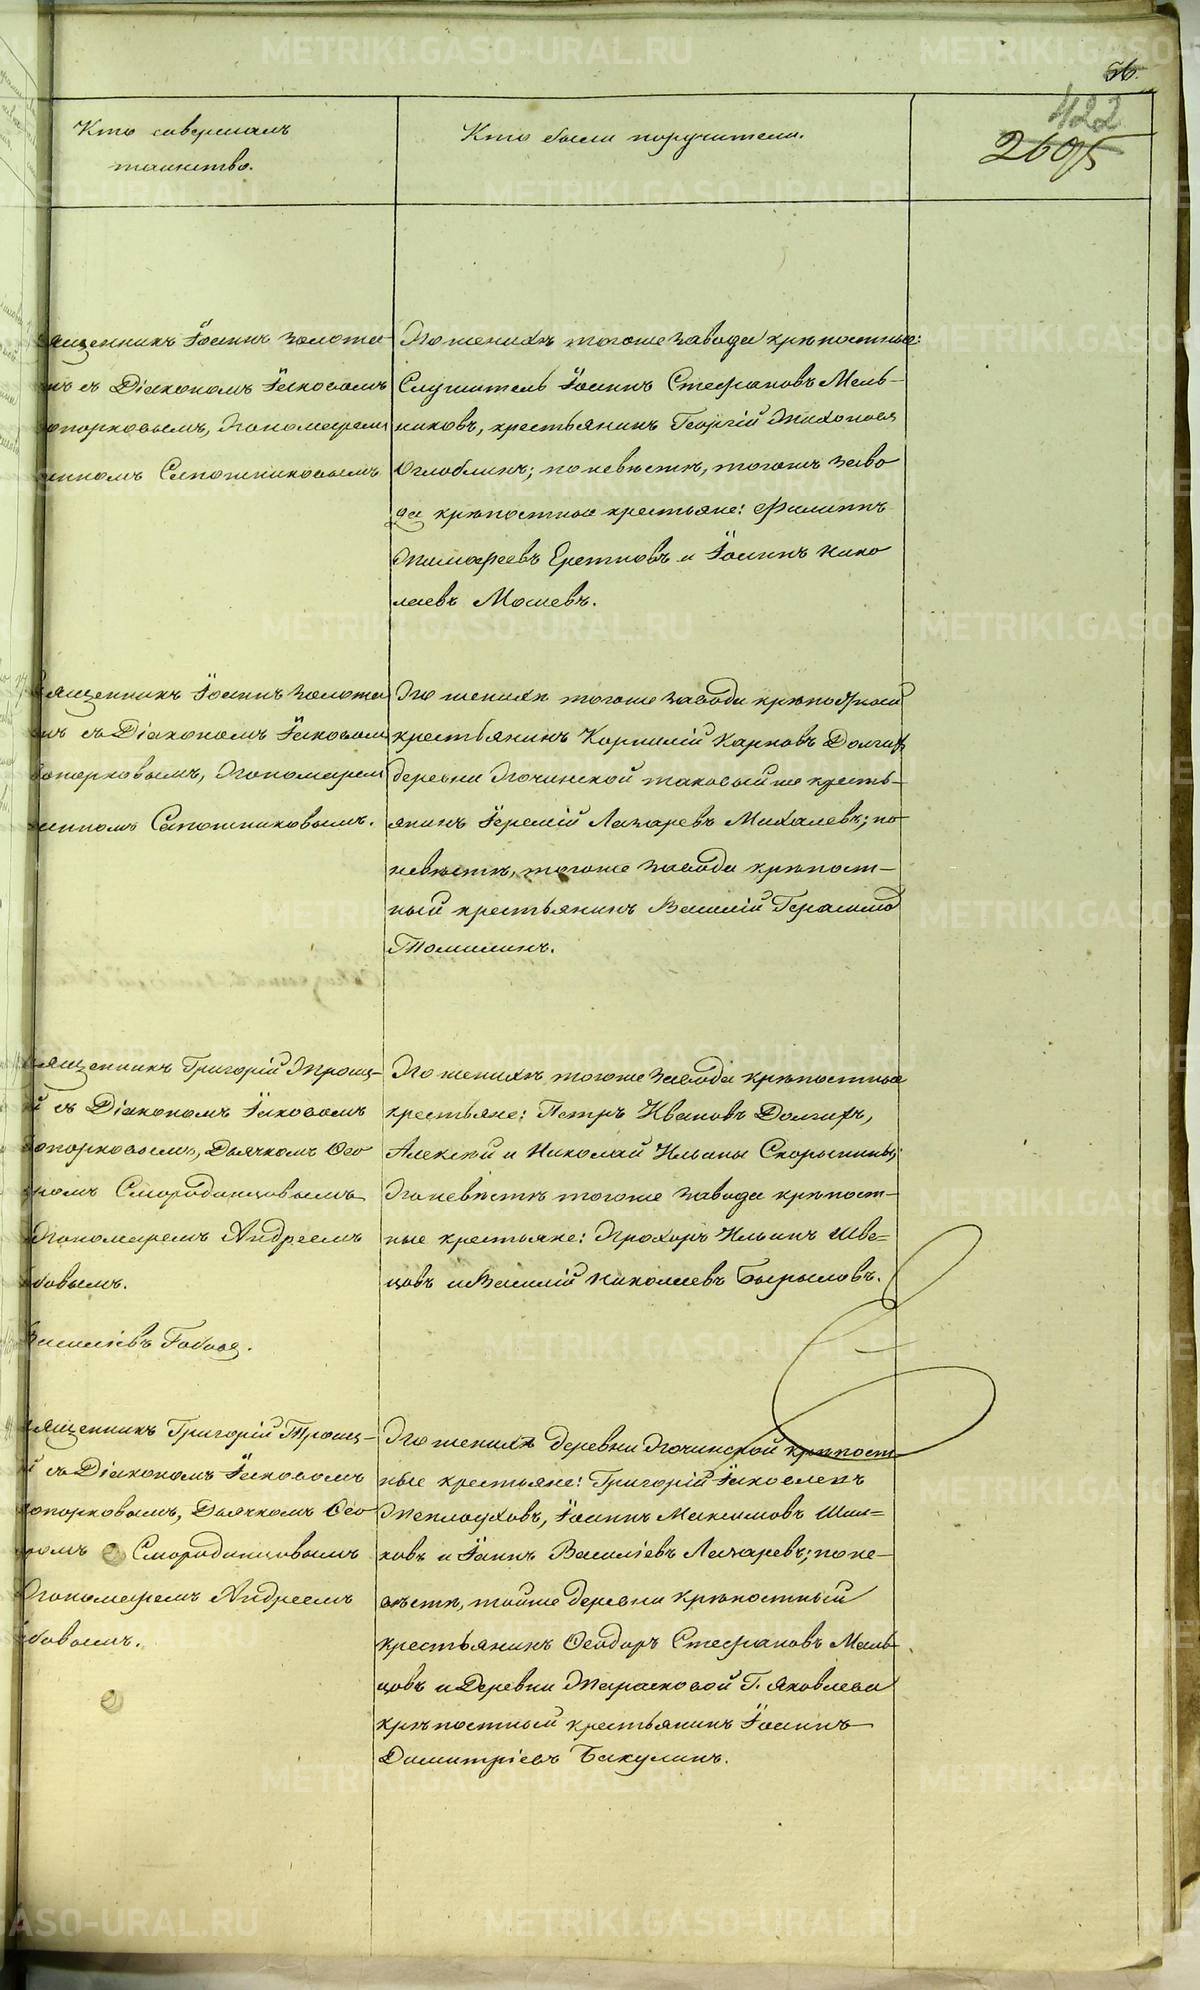 56.
422
2605
Кто совершалъ
таинство.
Кто были поручители.
священникъ Іоаннъ Золота-
нъ съ Діакономъ Іаковомъ
опорковымъ, Пономарем
анномъ Сапожниковымъ
По женихѣ тогоже завода крѣпостные:
Служитель Іоаннъ Стефановъ Мель-
никовъ, крестьянинъ Георгій Тихоновъ
Оглоблинъ; по невѣстѣ, тогожъ заво
да крѣпостные крестьяне: Филиппъ
Тимофеевъ и Іоаннъ Нико
лаевъ Мошевъ.
священникъ Іоаннъ Золота
нъ съ Діакономъ Іаковом
опорковымъ, Пономарем
анномъ Сапожниковымъ.
По женихѣ тогоже завода крѣпостный
крестьянинъ Корнилій Карповъ Долгихъ
деревни таковый же кресть-
янинъ Іеремій Лазаревъ Михалевъ; по
невѣстѣ, тогоже завода крѣпост-
ный крестьянинъ Василій Герасимов
Томилинъ.
священникъ Григорій Троиц-
й съ Діакономъ Іаковомъ
опорковымъ, Дьячкомъ Ѳео
ромъ Смородинцовымъ
Пономаремъ Андреемъ
бовымъ.
По женихѣ тогоже завода крѣпостные
крестьяне: Петръ Ивановъ Долгихъ,
Алексѣй и Николай Ильины Скорынины;
По невѣстѣ тогоже завода крѣпост-
ные крестьяне: Прохоръ Ильинъ Шве-
цовъ и Василій Николаевъ
Василіевъ
священникъ Григорій Троиц-
й съ Діакономъ Іаковомъ
опорковымъ, Дьячкомъ Ѳео
ромъ Смородинцовымъ
Пономаремъ Андреемъ
бовымъ.
По женихѣ деревни крѣпост
ные крестьяне: Григорій
Теплоуховъ, Іоаннъ Максимовъ Шил-
ковъ и Іоаннъ Василіевъ Лазаревъ; по не-
вѣстѣ, тойже деревни крѣпостный
крестьянинъ Ѳеодоръ Стефановъ Маль
цовъ и Деревни Тарасковой Г. Яковлева
крѣпостный крестьянинъ Іоаннъ
Димитріевъ Бакулинъ.
METRIKI.GASO-URAL.RU